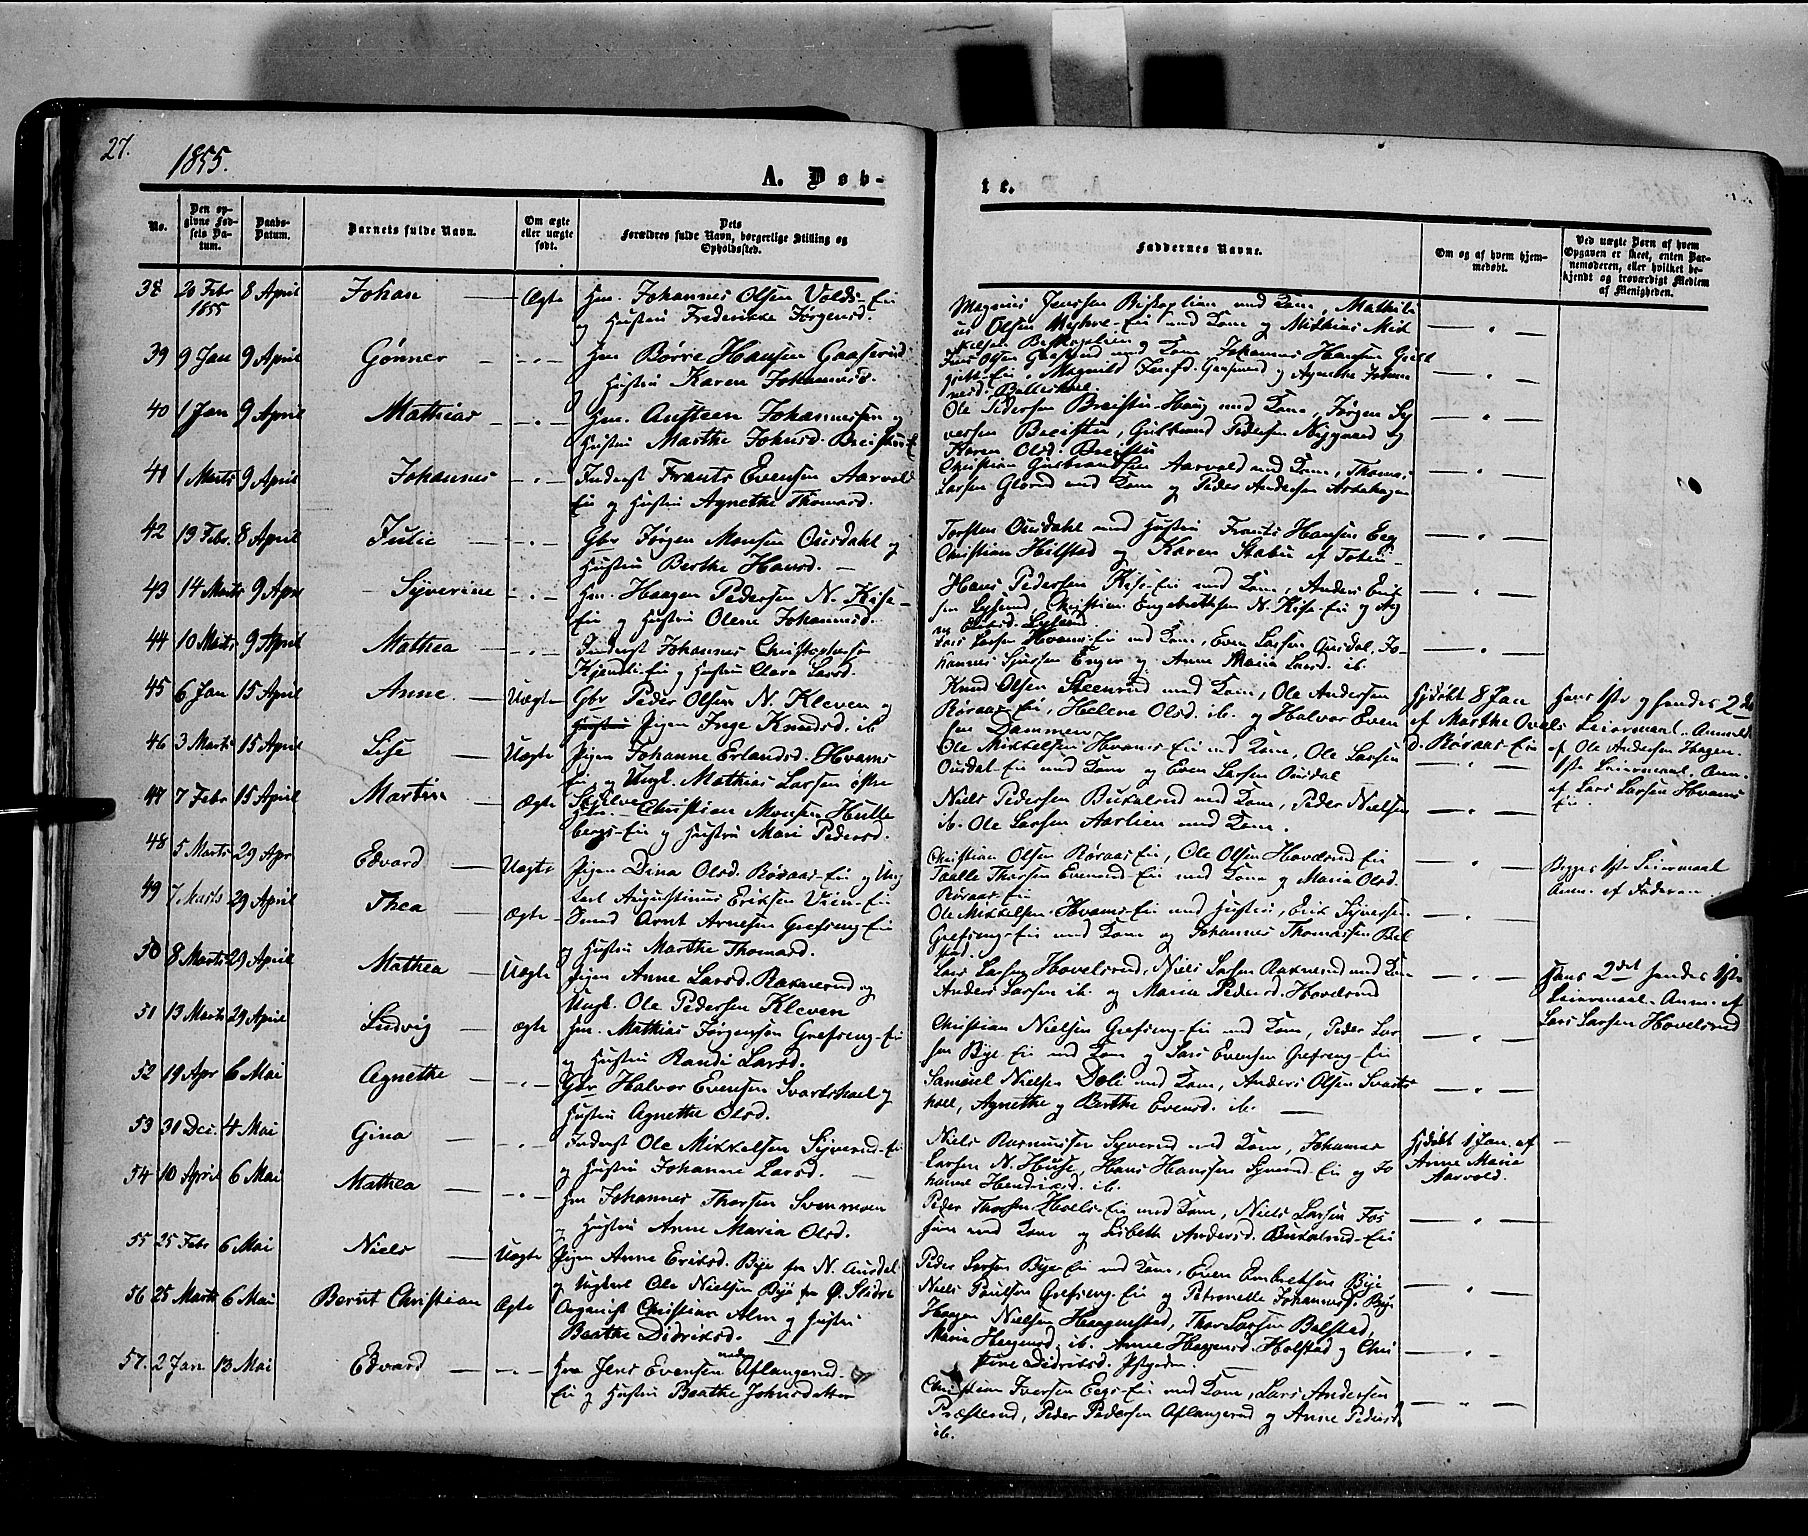 27.
1855.
A. Døb-
te.
No.
Den op-
givne Fød-
sels Da-
tum.
Daabs-
Datum.
Barnets fulde Navn.
Om ægte
eller uægte
født.
Dets
Forældres fulde Navn, borgerlige Stilling og
Opholdssted.
Faddernes Navne.
Om og af hvem hjem-
medøbt.
Ved uægte Børn af hvem
Opgaven er skeet, enten Bar-
nemoderen, eller hvilket be-
kjendt og troværdigt Medlem
af Menigheden.
38 20 Febr 8 April Johan — Ægte Hm. Johannes Olsen Volds-Ei
1855 og Hustru Frederikke Jørgensd.
Magnus Jensen Biskoplien med Kone, Mathi
Olsen Myhre-Ei med Kone og Mathias Mik
kelsen Biskoplien
39 9 Jan 9 April Gønner — " — Hm Børre Hansen Gaaserud
Hustru Karen Johannesd.
Jens Olsen Gaaserud med Kone Johannes Hansen
Ei, Magnild Jensd. Gaaserud og Agnethe Johan
nesd.
40 1 Jan 9 April Mathias — " — Hm. Austeen Johannessen og
Hustru Marthe Johnsd. Breistu-E
Ole Pedersen Breistu-Haug med Kone, Jørgen Sy
versen Breistu, Gulbrand Pedersen Nygaard og
Karen Olsd. Breistu
41 1 Marts 9 April Johannes — " — Inderst Frants Evensen Aarvold
Ei og Hustru Agnethe Thomasd.
Christian Gulbrandsen Aarvold med Kone, Thomas
Larsen Glorud med Kone og Peder Andersen
42 13 Febr. 8 April Julie — " — Gbr Jørgen Monsen Ousdahl og
Hustru Berthe Hansd. —
Torsten Ousdahl med Hustru Frants Hansen Eeg
Christian Hilstad og Karen Stabu af Toten —
43 14 Marts 9 Apri Syverine — " — Hm. Haagen Pedersen N. Kise-
Ei og Hustru Olene Johannesd.
Hans Pedersen Kise-Ei med Kone, Anders Erik
sen Lyserud, Christian Engebrethsen N. Kise-Ei og
Eriksd. Lyserud.
44 10 Marts 9 April Mathea — " — Inderst Johannes Christophersen
Ei og Hustru Clara Larsd.
Lars Larsen Hvams-Ei med Kone, Even Larsen Ousdal, Jo-
hannes Sjursen Enger og Anne Maria Larsd. ib.
45 6 Jan 15 April Anne — Uægte Gbr Peder Olsen N. Kleven og
Hustru Pigen Inge Knudsd. ib
Knud Olsen Steensrud med Kone, Ole Andersen
Røraas-Ei, Helene Olsd. ib. og Halvor Even
sen Dammen
Hjdøbt 8 Jan
af Marthe
Røraas-Ei
Hans 1ste og hendes 2det
Leiermaal. Anmeldt
af Ole Andersen Hagen.
46 3 Marts 15 April Lise — Uægte Pigen Johanne Erlandsd. Hvams
Ei og Ungk. Mathias Larsen østre
Ole Mikkelsen Hvams-Ei med Kone, Ole Larsen
Ousdal-Ei med Kone og Even Larsen Ousdal
1ste Leiermaal. Anm.
af Lars Larsen Hvams
Ei.
47 7 Febr 15 April Martin — Ægte Hm. Christian Monsen Hulle
bergs-Ei og Hustru Mari Pedersd.
Niels Pedersen Buhalsrud med Kone, Peder Nielsen
ib. Ole Larsen Aarlien med Kone.
48 5 Marts 29 Apr Edvard — Uægte Pigen Dina Olsd. Røraas-Ei og Ung
karl Augustinus Eriksen Vien-Ei
Christian Olsen Røraas-Ei, Ole Olsen Hovelsrud Ei
Taalle Thorsen Evensrud Ei med Kone og Maria Olsd.
Røraas-Ei
Begges 1ste Leiermaal
Anm. af Faderen.
49 7 Marts 29 April Thea — Ægte Arnt Arnesen Grefseng-Ei
og Hustru Marthe Thomasd.
Ole Mikkelsen Hvams-Ei med Hustru, Erik Syversen
Grefseng-Ei med Kone og Johannes Thomassen Bal
stad.
50 8 Marts 29 April Mathea — Uægte Pigen Anne Larsd. Raknerud og
Ungk. Ole Pedersen Kleven
Lars Larsen Hovelsrud, Niels Larsen Raknerud med Kone
Anders Larsen ib. og Maria Pedersd. Hovelsrud
Hans 2det hendes 1ste
Leiermaal. Anm. af
Lars Larsen Hovelsrud
51 13 Marts 29 April Ludvig — ægte Hm. Mathias Jørgensen Grefseng-Ei
og Hustru Randi Larsd.
Christian Nielsen Grefseng-Ei med Kone, Peder Lar
sen Bye-Ei med Kone og Lars Evensen Grefseng-Ei
52 19 Apr 6 Mai Agnethe — " — Gbr Halvor Evensen Svartshoel og
Hustru Agnethe Olsd.
Samuel Nielsen Doli med Kone, Anders Olsen Svarts
hoel, Agnethe og Berthe Evensd. ib. —
53 31 Dec. 4 Mai Gina — " — Inderst Ole Mikkelsen Syverud-Ei
og Hustru Johanne Larsd. —
Niels Rasmussen Syverud med Kone, Johannes
Larsen N. Huse, Hans Hansen Syverud-Ei og Jo
hanne Henriksd. ib.
Hjdøbt 1 Jan. af
Anne Marie
Aarvold.
54 10 April 6 Mai Mathea — " — Hm Johannes Thorsen Svenmoen
og Hustru Anne Maria Olsd.
Peder Thorsen Hvels-Ei med Kone, Niels Larsen Fos
sum med Kone og Lisbeth Andersd. Buhalsrud-Ei
55 25 Febr 6 Mai Niels — Uægte Pigen Anne Eriksd. Bye fra N. Aurdal
og Ungkarl Ole Nielsen Bye fra Ø. Slidre
Peder Larsen Bye-Ei med Kone, Even Embretsen Bye
Niels Paulsen Grefseng-Ei og Petronelle Johannesd. Bye
56 25 Marts 6 Mai Bernt Christian Ægte Organist Christian Alm og Hustru
Berthe Didriksd. —
Haagen Nielsen Haagenstad, Thor Larsen Balstad,
Maria Haagensd. ib. Anne Haagensd. Holstad og Chri
stine Didriksd.
57. 2 Jan 13 Mai Edvard — " — Hm Jens Evensen nedre Aflangerud-
Ei og Hustru Beathe Johnsdatter
Christian Iversen Eegs-Ei med Kone, Lars Andersen
Præsterud, Peder Pedersen Aflangerud og Anne Pedersd
ib.